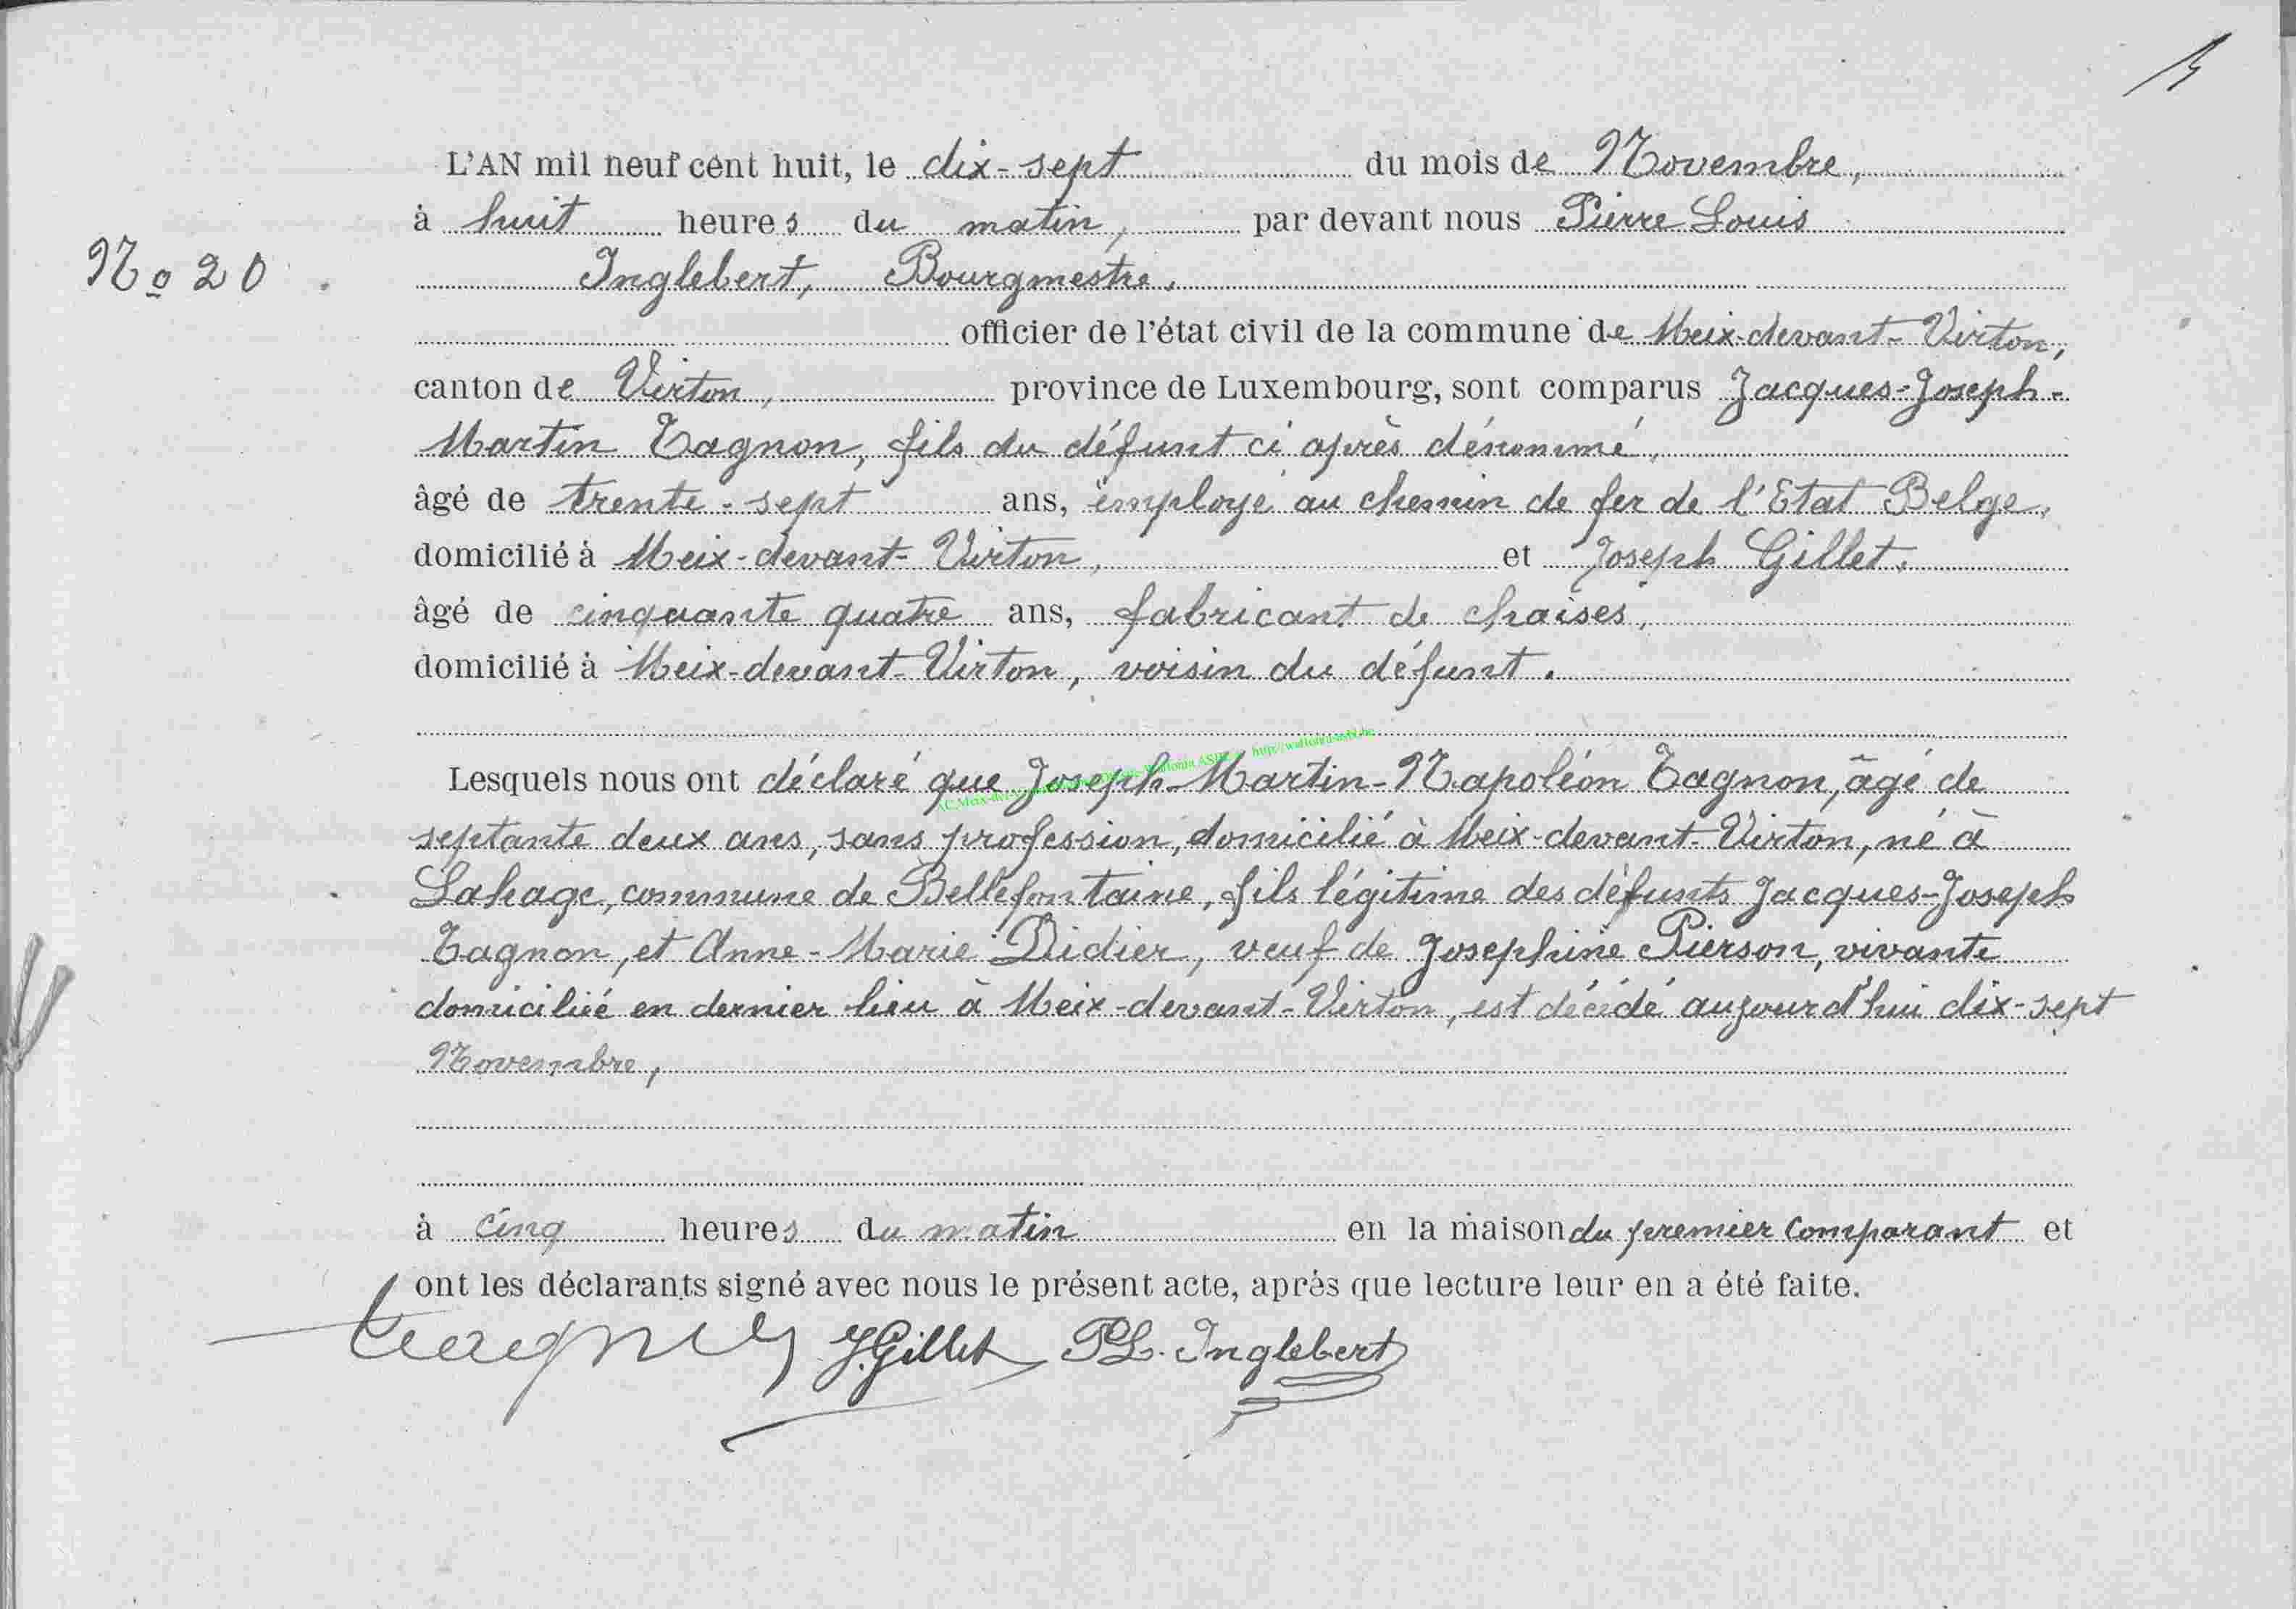 L'AN mil neuf cent huit, le dix-sept du mois de Novembre,
à huit heures du matin, par devant nous Pierre Louis
Nº 20
Inglebert, Bourgmestre,
officier de l'état civil de la commune de Meix-devant-Virton,
canton de Virton, province de Luxembourg, sont comparus Jacques-Joseph-
Martin Tagnon, fils du défunt ci après dénommé,
âgé de trente-sept ans, employé au chemin de fer de l'Etat Belge,
domicilié à Meix-devant-Virton, et Joseph Gillet,
âgé de cinquante quatre ans, fabricant de chaises,
domicilié à Meix-devant-Virton, voisin du défunt.
Lesquels nous ont déclaré que Joseph-Martin-Napoléon Tagnon, âgé de
septante deux ans, sans profession, domicilié à Meix-devant-Virton, né à
Lahage, commune de Bellefontaine, fils légitime des défunts Jacques-Joseph
Tagnon, et Anne-Marie Didier, veuf de Josephine Pierson, vivante
domiciliée en dernier lieu à Meix-devant-Virton, est décédé aujourd'hui dix-sept
Novembre,
à cinq heures du matin en la maison du premier Comparant et
ont les déclarants signé avec nous le présent acte, après que lecture leur en a été faite.
Tagnon J. Gillet PL. Inglebert